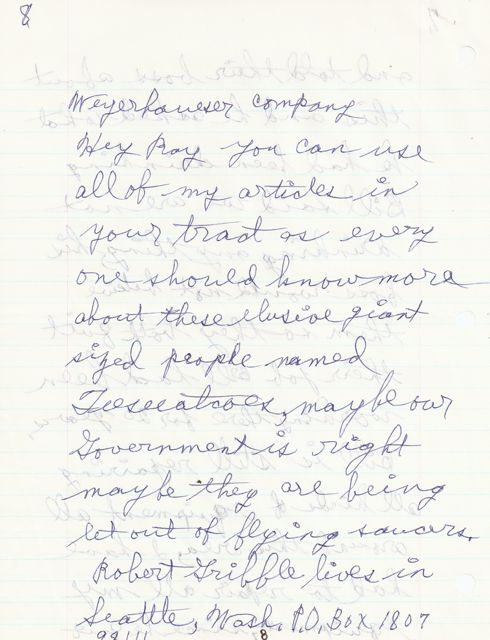 8
Weyerhaueser company
Hey Ray you can use
all of my articles in
your tract as every
one should know more
about these elusive giant
sized people named
maybe our
Government is right
maybe they are being
let out of flying saucers.
Robert Gribble lives in
Seattle, Wash. P.O, Box 1807
98111
8